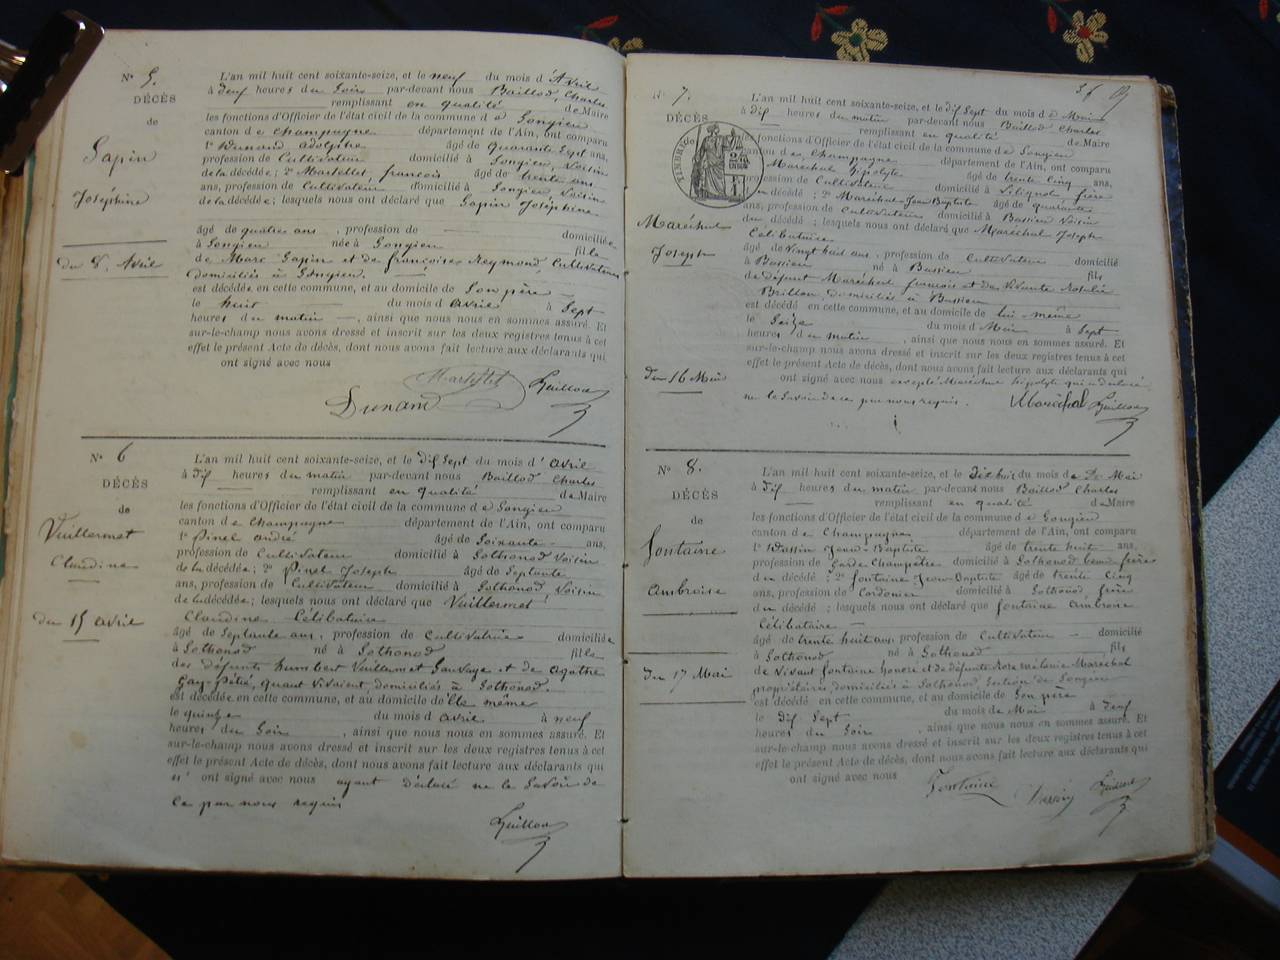 N° 5.
DÉCÈS
de
Sapin
Joséphine
du 8. Avril
L'an mil huit cent soixante-seize, et le neuf du mois d'Avril
à neuf heures du Soir par-devant nous Baillod, Charles
remplissant en qualité de Maire
les fonctions d'Officier de l'état civil de la commune de Songieu
canton de Champagne département de l'Ain, ont comparu
1° Dunand Adolphe âgé de quarante Sept ans,
profession de Cultivateur domicilié à Songieu, Voisin
de la décédée; 2° Martellet, françois âgé de trente ans
ans, profession de Cultivateur domicilié à Songieu, Voisin
de la décédée; lesquels nous ont déclaré que Sapin Joséphine
âgé de quatre ans, profession de domiciliée
à Songieu née à Songieu fille
de Marc Sapin et de françoise Reymond, Cultivateurs
domiciliés à Songieu.
est décédée en cette commune, et au domicile de Son père
le huit du mois d avril à Sept
heures du matin, ainsi que nous nous en sommes assuré. Et
sur-le-champ nous avons dressé et inscrit sur les deux registres tenus à cet
effet le présent Acte de décès, dont nous avons fait lecture aux déclarants qui
ont signé avec nous
Martellet
Dunand
N° 6
DÉCÈS
de
Vuillermet
Claudine
du 15 avril
L'an mil huit cent soixante-seize, et le dix Sept du mois d'avril
à dix heures du matin par-devant nous Baillod Charles
remplissant en qualité de Maire
les fonctions d'Officier de l'état civil de la commune de Songieu
canton de Champagne département de l'Ain, ont comparu
1° Pinel andré âgé de Soixante ans,
profession de Cultivateur domicilié à Sothonod Voisin
de la décédée; 2° Pinel Joseph âgé de Septante
ans, profession de Cultivateur domicilié à Sothonod, Voisin
de la décédée; lesquels nous ont déclaré que Vuillermet
Claudine Célibataire
âgé de Septante ans, profession de Cultivatrice domiciliée
à Sothonod né à Sothonod fille
des défunts humbert Vuillermet Sauvage et de Agathe
Gay-Pétié, quant vivaient, domiciliés à Sothonod.
est décédée en cette commune, et au domicile d'Elle même
le quinze du mois d avril à neuf
heures du Soir, ainsi que nous nous en sommes assuré. Et
sur-le-champ nous avons dressé et inscrit sur les deux registres tenus à cet
effet le présent Acte de décès, dont nous avons fait lecture aux déclarants qui
n' ont signé avec nous ayant déclaré ne le Savoir de
ce par nous requis
N° 7.
DÉCÈS
de
TIMBRE
Maréchal
Joseph
du 16 Mai
L'an mil huit cent soixante-seize, et le dix Sept du mois de Mai
à dix heures du matin par-devant nous Baillod Charles
remplissant en qualité de Maire
les fonctions d'Officier de l'état civil de la commune de Songieu
canton de Champagne département de l'Ain, ont comparu
1° Maréchal hipolyte âgé de trente cinq ans,
profession de Cultivateur domicilié à Lilignod frère
du décédé; 2° Maréchal Jean Baptiste âgé de quarante
ans, profession de Cultivateur domicilié à Bassieu Voisin
du décédé; lesquels nous ont déclaré que Maréchal Joseph
Célibataire
âgé de Vingt huit ans, profession de Cultivateur domicilié
à Bassieu né à Bassieu fils
de défunt Maréchal françois et de Vivante Rosalie
Brillon, domiciliés à Bassieu
est décédé en cette commune, et au domicile de lui-même
le Seize du mois d Mai à Sept
heures du matin, ainsi que nous nous en sommes assuré. Et
sur-le-champ nous avons dressé et inscrit sur les deux registres tenus à cet
effet le présent Acte de décès, dont nous avons fait lecture aux déclarants qui
ont signé avec nous excepté Maréchal hipolyte qui a déclaré
ne le Savoir de ce par nous requis.
Maréchal
N° 8.
DÉCÈS
de
fontaine
Ambroise
du 17 Mai
L'an mil huit cent soixante-seize, et le dix huit du mois de Mai
à dix heures du matin par-devant nous Baillod Charles
remplissant en qualité de Maire
les fonctions d'Officier de l'état civil de la commune de Songieu
canton de Champagne département de l'Ain, ont comparu
1° Jean-Baptiste âgé de trente huit ans,
profession de Garde Champêtre domicilié à Sothonod beau frère
du décédé; 2° fontaine Jean-Baptiste âgé de trente Cinq
ans, profession de Cordonier domicilié à Sothonod, frère
du décédé; lesquels nous ont déclaré que fontaine Ambroise
Célibataire
âgé de trente huit ans, profession de Cultivateur domicilié
à Sothonod né à Sothonod fils
de Vivant fontaine honoré et de défunte Rose mélanie Maréchal
propriétaires, domiciliés à Sothonod, Section de Songieu
est décédé en cette commune, et au domicile de Son père
le dix Sept du mois de Mai à neuf
heures du Soir, ainsi que nous nous en sommes assuré. Et
sur-le-champ nous avons dressé et inscrit sur les deux registres tenus à cet
effet le présent Acte de décès, dont nous avons fait lecture aux déclarants qui
ont signé avec nous
Fontaine